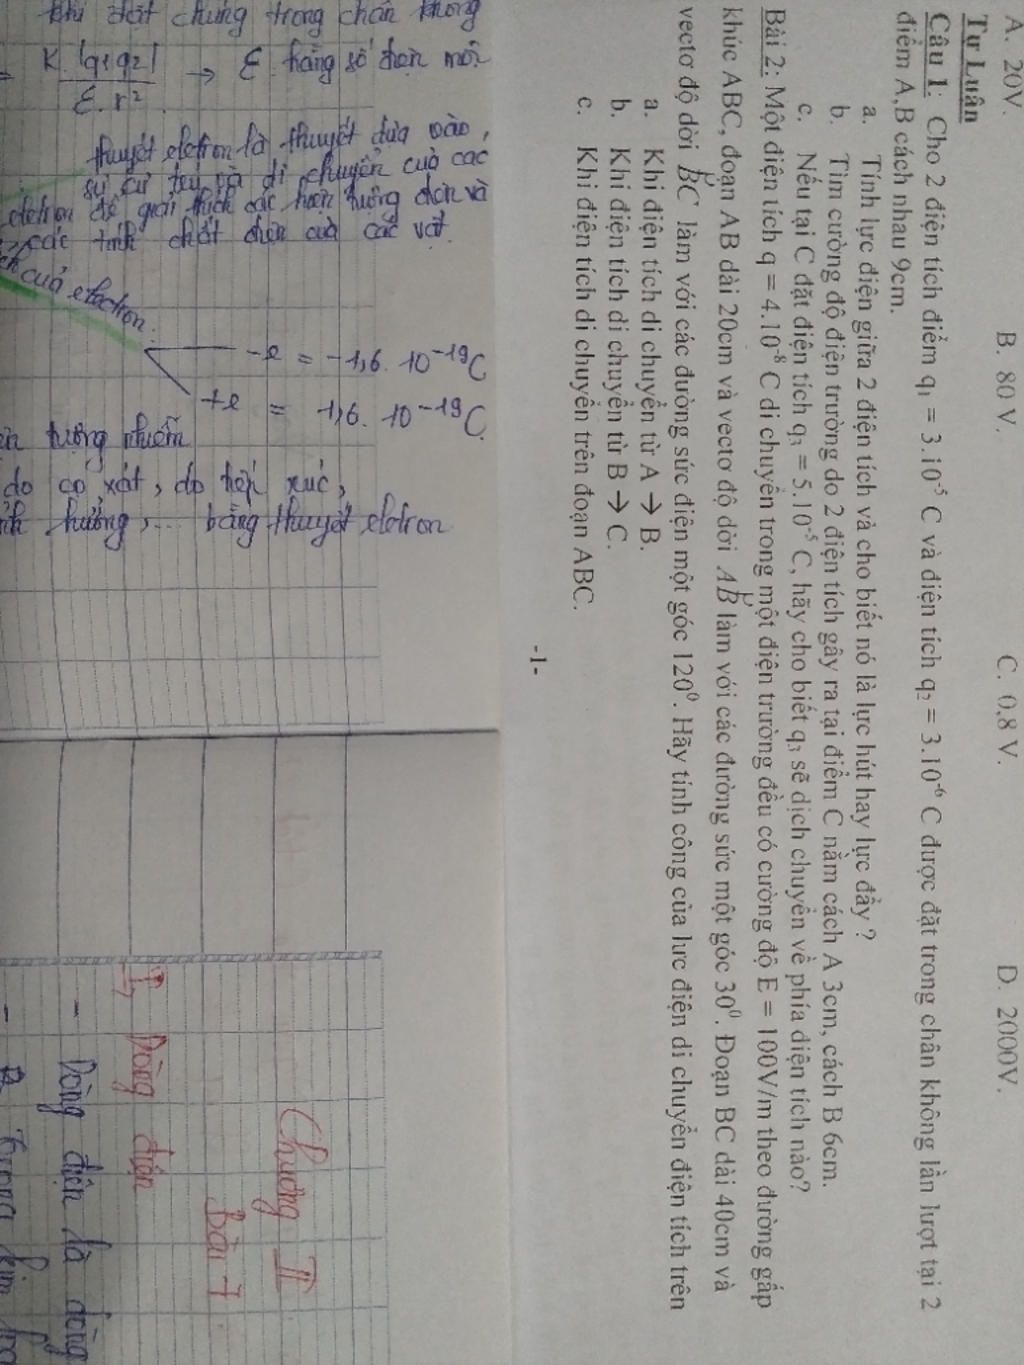 A. 20V.
B. 80 V.
C. 0,8 V.
D. 2000V.
Tự Luận
Câu 1: Cho 2 điện tích điểm q₁ = 3.10⁻⁵ C và điện tích q₂ = 3.10⁻⁶ C được đặt trong chân không lần lượt tại 2
điểm A,B cách nhau 9cm.
a. Tính lực điện giữa 2 điện tích và cho biết nó là lực hút hay lực đẩy ?
b. Tìm cường độ điện trường do 2 điện tích gây ra tại điểm C nằm cách A 3cm, cách B 6cm.
c. Nếu tại C đặt điện tích q₃ = 5.10⁻⁵ C, hãy cho biết q₃ sẽ dịch chuyển về phía điện tích nào?
Bài 2: Một điện tích q = 4.10⁻⁸ C di chuyển trong một điện trường đều có cường độ E = 100V/m theo đường gấp
khúc ABC, đoạn AB dài 20cm và vectơ độ dời AB làm với các đường sức một góc 30⁰. Đoạn BC dài 40cm và
vectơ độ dời BC làm với các đường sức điện một góc 120⁰. Hãy tính công của lực điện di chuyển điện tích trên
a. Khi điện tích di chuyển từ A → B.
b. Khi điện tích di chuyển từ B → C.
c. Khi điện tích di chuyển trên đoạn ABC.
-1-
khi đặt chúng trong chân không
K |q₁q₂| / ε.r² → ε hằng số điện môi
thuyết electron là thuyết dựa vào
sự cư trú và di chuyển của các
electron để giải thích các hiện tượng điện và
các tính chất điện của các vật.
của electron.
-e = -1,6. 10⁻¹⁹C
+e = 1,6. 10⁻¹⁹C.
tượng nhiễm
do cọ xát, do tiếp xúc,
hưởng,... bằng thuyết electron
Chương II
Bài 7
I, Dòng điện
- Dòng điện là dòng
- trong kim